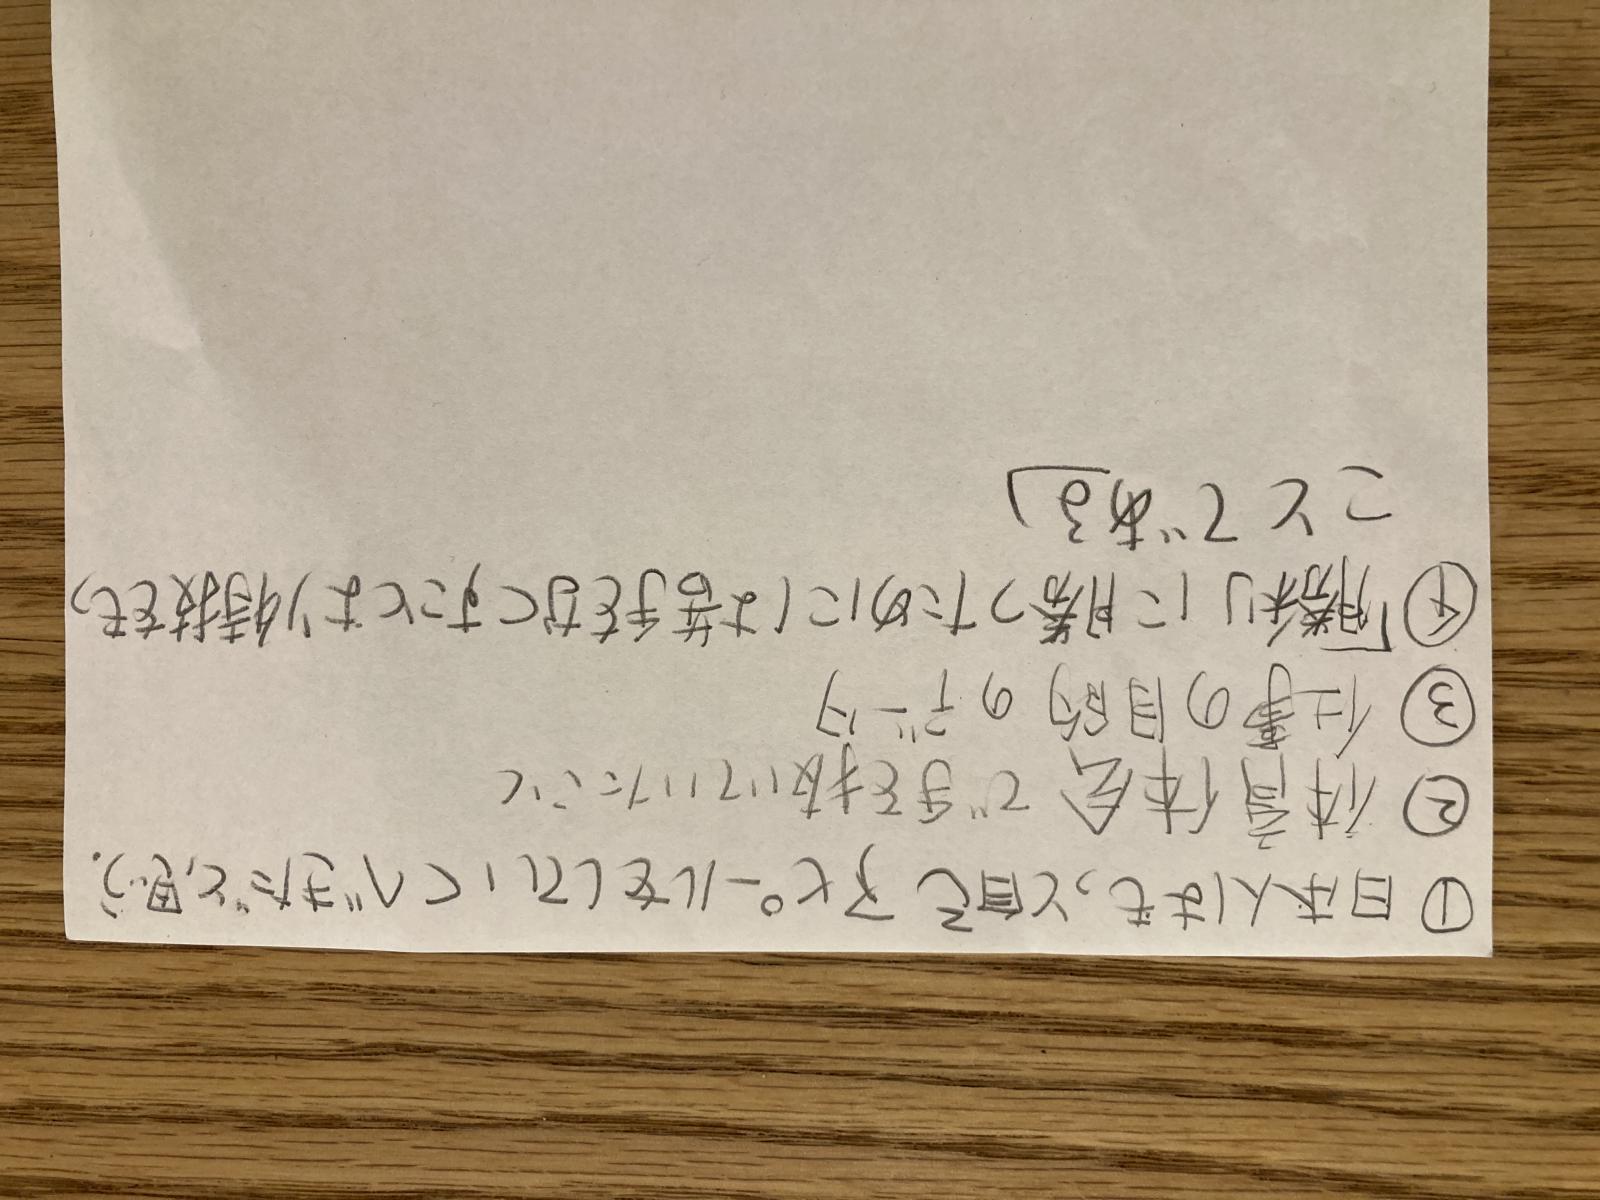 ①日本人はもっと自己アピールをしていくべきだと思う。
②体育体会で手を抜いていたこと
③仕事の目的のデータ
④「勝利に勝つためには苦手をなくすことより特技をもつ
ことである」